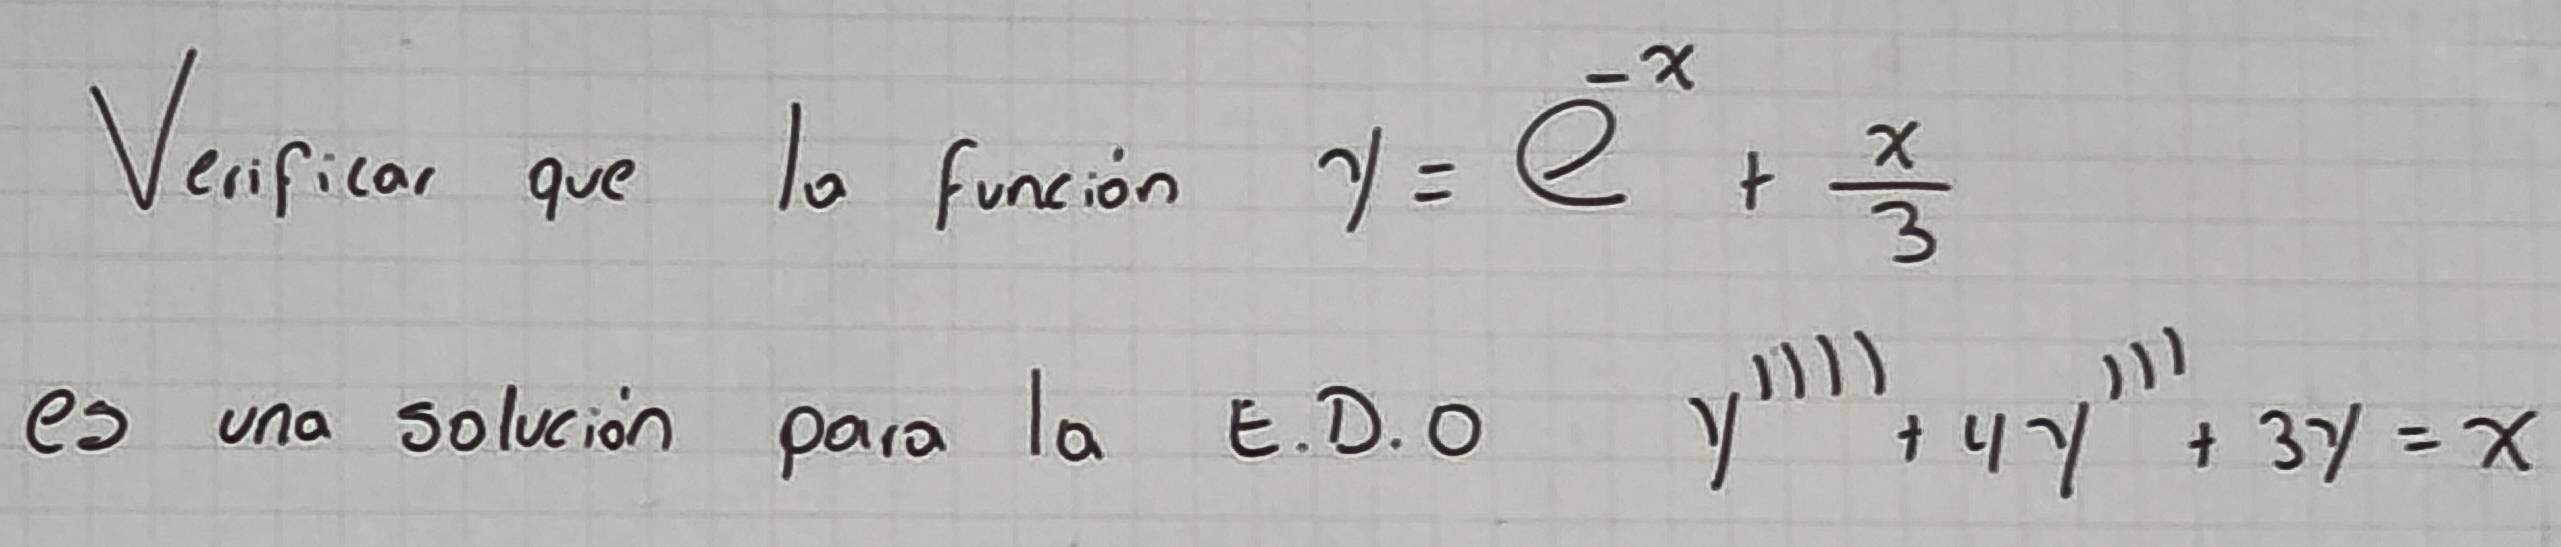 Verificar que la función y = e^{-x} + \frac{x}{3}
es una solución para la E.D.O y'''' + 4y''' + 3y = x